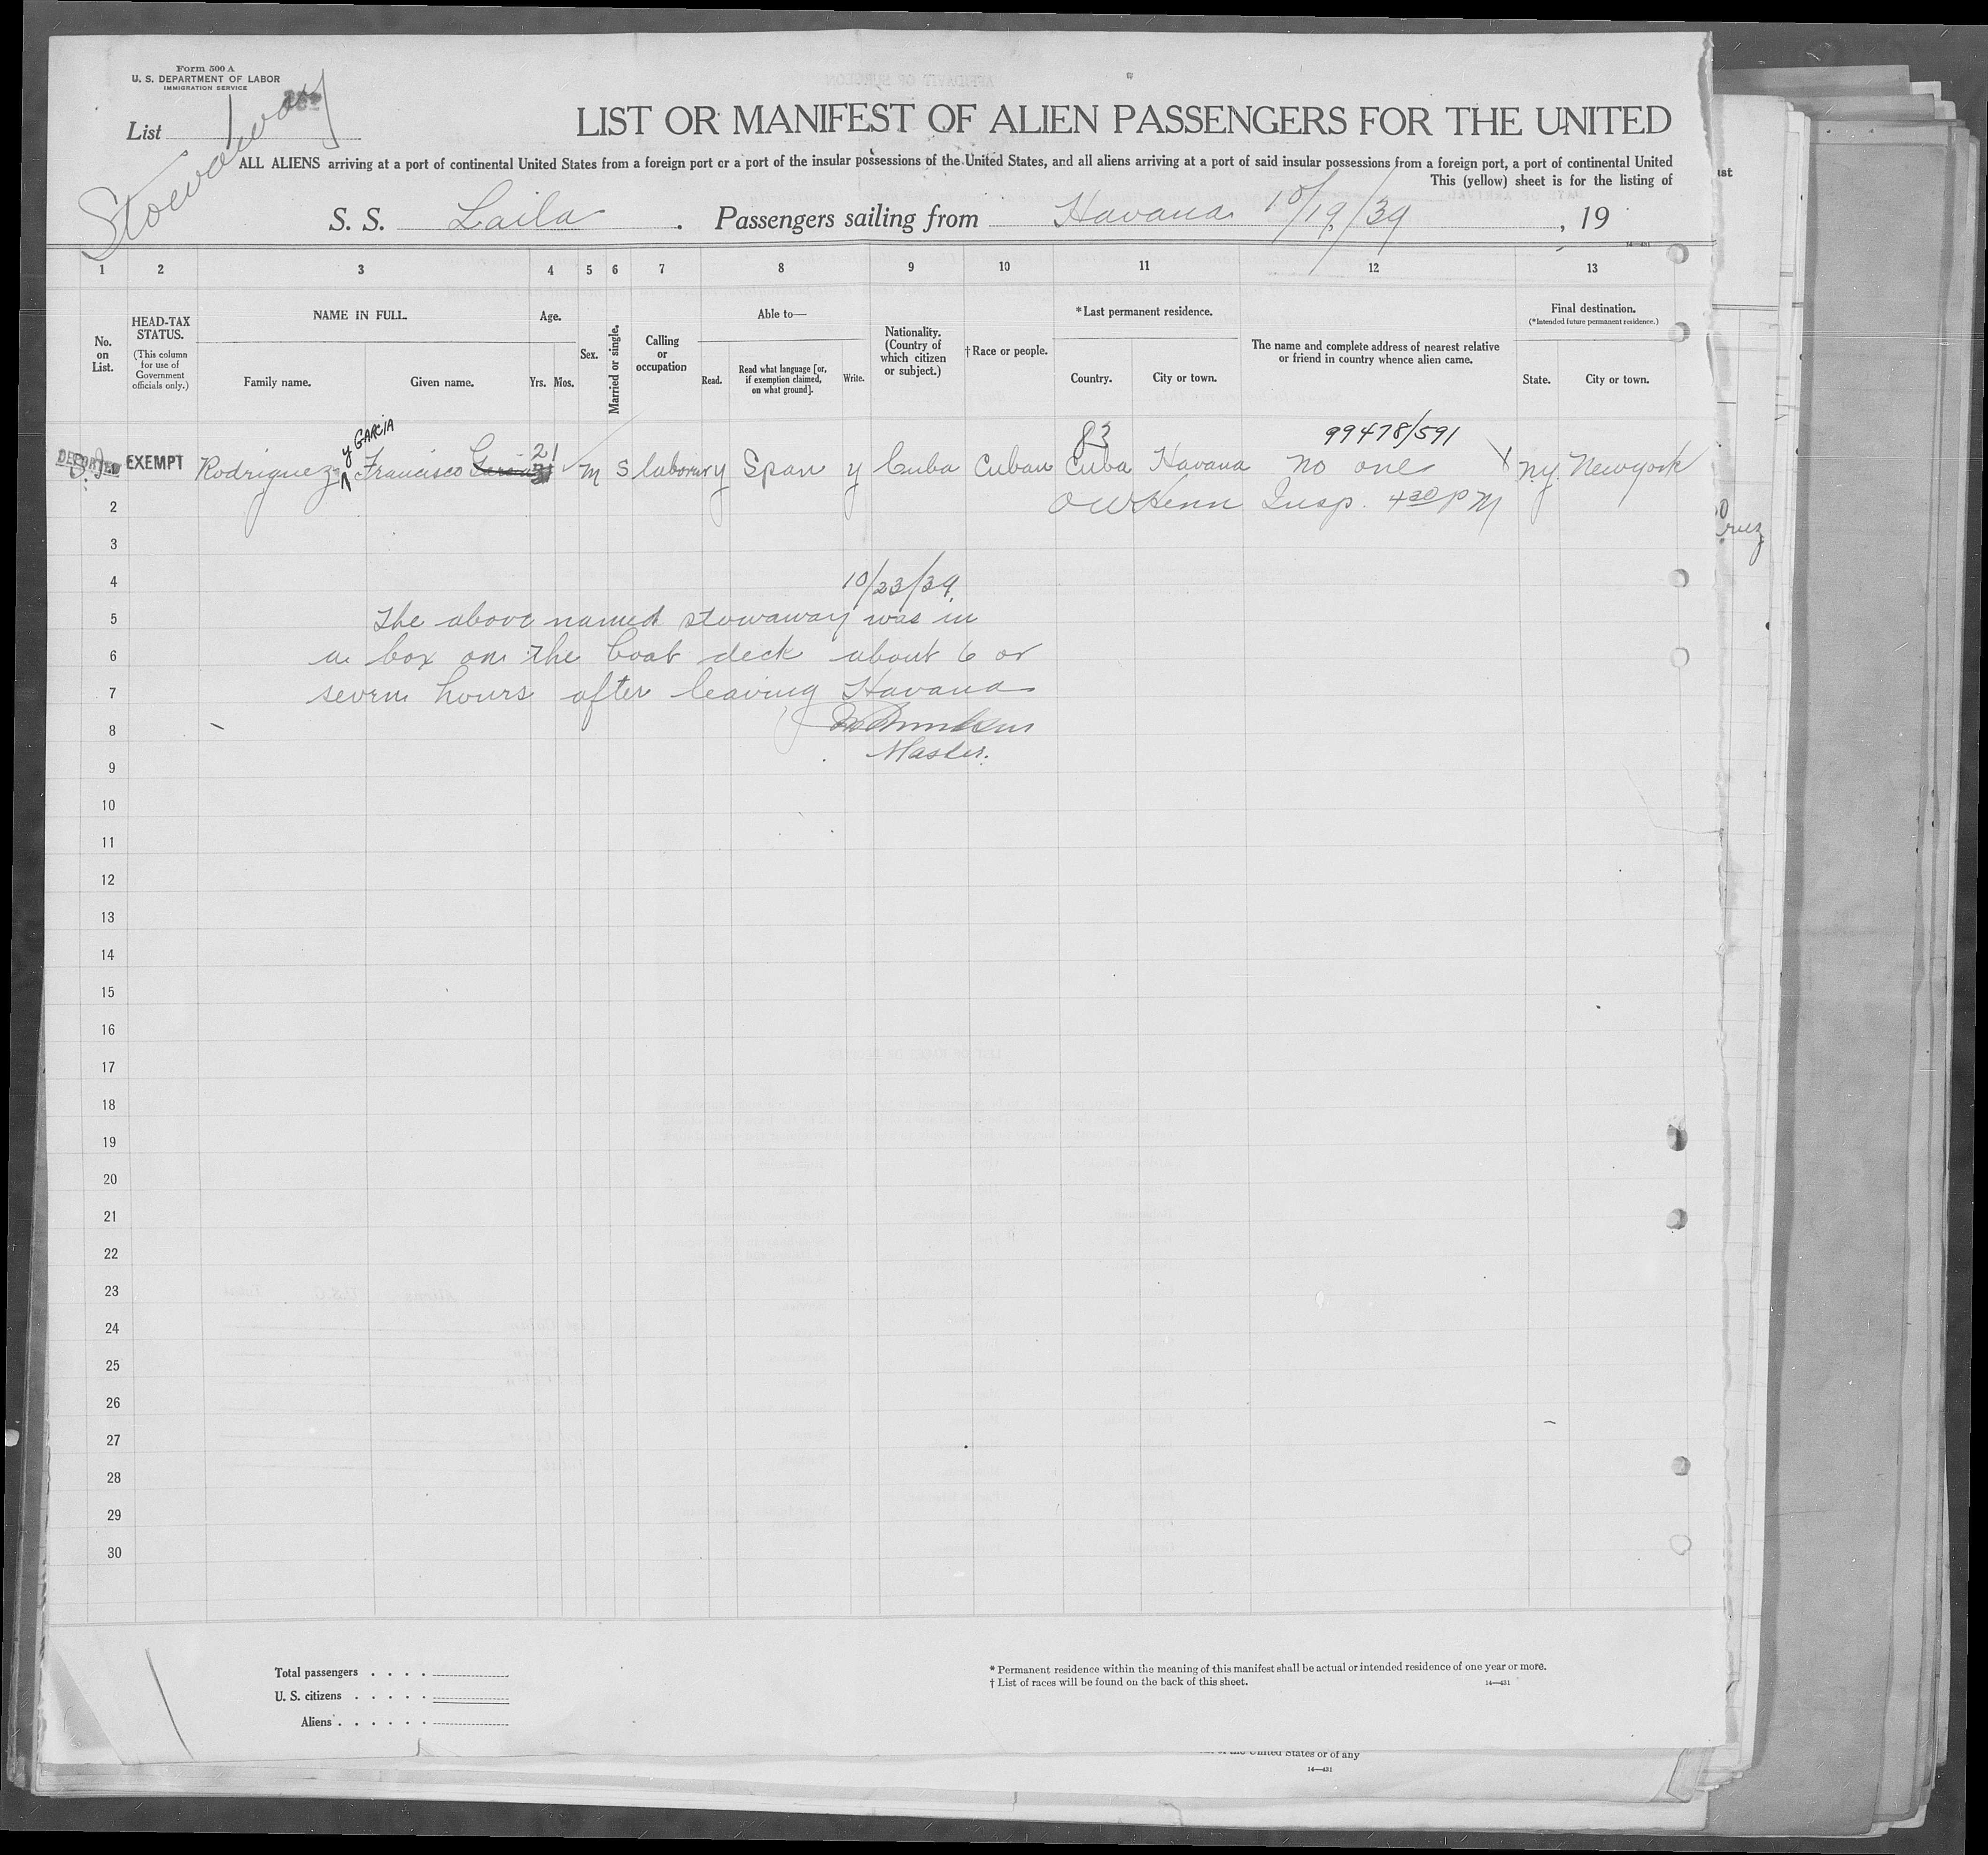 Form 500 A
U. S. DEPARTMENT OF LABOR
IMMIGRATION SERVICE
List
Stowaway
LIST OR MANIFEST OF ALIEN PASSENGERS FOR THE UNITED
ALL ALIENS arriving at a port of continental United States from a foreign port or a port of the insular possessions of the United States, and all aliens arriving at a port of said insular possessions from a foreign port, a port of continental United
This (yellow) sheet is for the listing of
S. S. Laila . Passengers sailing from Havana 10/19/39 , 19
14—431
1 2 3 4 5 6 7 8 9 10 11 12 13
No. on List.
HEAD-TAX STATUS.
(This column for use of Government officials only.)
NAME IN FULL.
Family name. Given name.
Age.
Yrs. Mos.
Sex.
Married or single.
Calling or occupation
Able to—
Read. Read what language [or, if exemption claimed, on what ground]. Write.
Nationality. (Country of which citizen or subject.)
† Race or people.
* Last permanent residence.
Country. City or town.
The name and complete address of nearest relative or friend in country whence alien came.
Final destination.
(*Intended future permanent residence.)
State. City or town.
y GARCIA
83
99478/591
21
DEPORTED EXEMPT Rodriguez Francisco Garcia M S laborer y Span y Cuba Cuban Cuba Havana no one N.Y. New york
2 Insp. 4 30 PM
3
4 10/23/39
5 The above named stowaway was in
6 a box on the boat deck about 6 or
7 seven hours after leaving Havana
8
9 Master.
10
11
12
13
14
15
16
17
18
19
20
21
22
23
24
25
26
27
28
29
30
Total passengers . . . .
U. S. citizens . . . . .
Aliens . . . . . .
* Permanent residence within the meaning of this manifest shall be actual or intended residence of one year or more.
† List of races will be found on the back of this sheet.
14—431
United States or of any
14—431